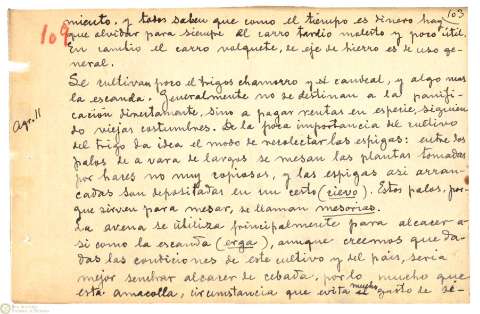 103
109
miento, y todos saben que como el tiempo es dinero hay
que olvidar para siempre al carro tardío molesto y poco útil.
En cambio el carro volquete, de eje de hierro es de uso ge-
neral.
Agr. 11
Se cultivan poco el trigos chamorro y el candeal, y algo mas
la escanda. Generalmente no se destinan a la panifi-
cación directamente, sino a pagar rentas en especie, siguien
do viejas costumbres. De la poca importancia del cultivo
del trigo da idea el modo de recolectar las espigas: entre dos
palos de a vara de largos se mesan las plantas tomadas
por haces no muy copiosos, y las espigas asi arran-
cadas son depositadas en un cesto (cievo). Estos palos, por-
que sirven para mesar, se llaman mesorias.
La avena se utiliza principalmente para alcacer a-
si como la escanda (erga), aunque creemos que da-
das las condiciones de este cultivo y del pais, seria
mejor sembrar alcacer de cebada, por lo mucho que
esta amacolla, circunstancia que evita mucho el gasto de se-